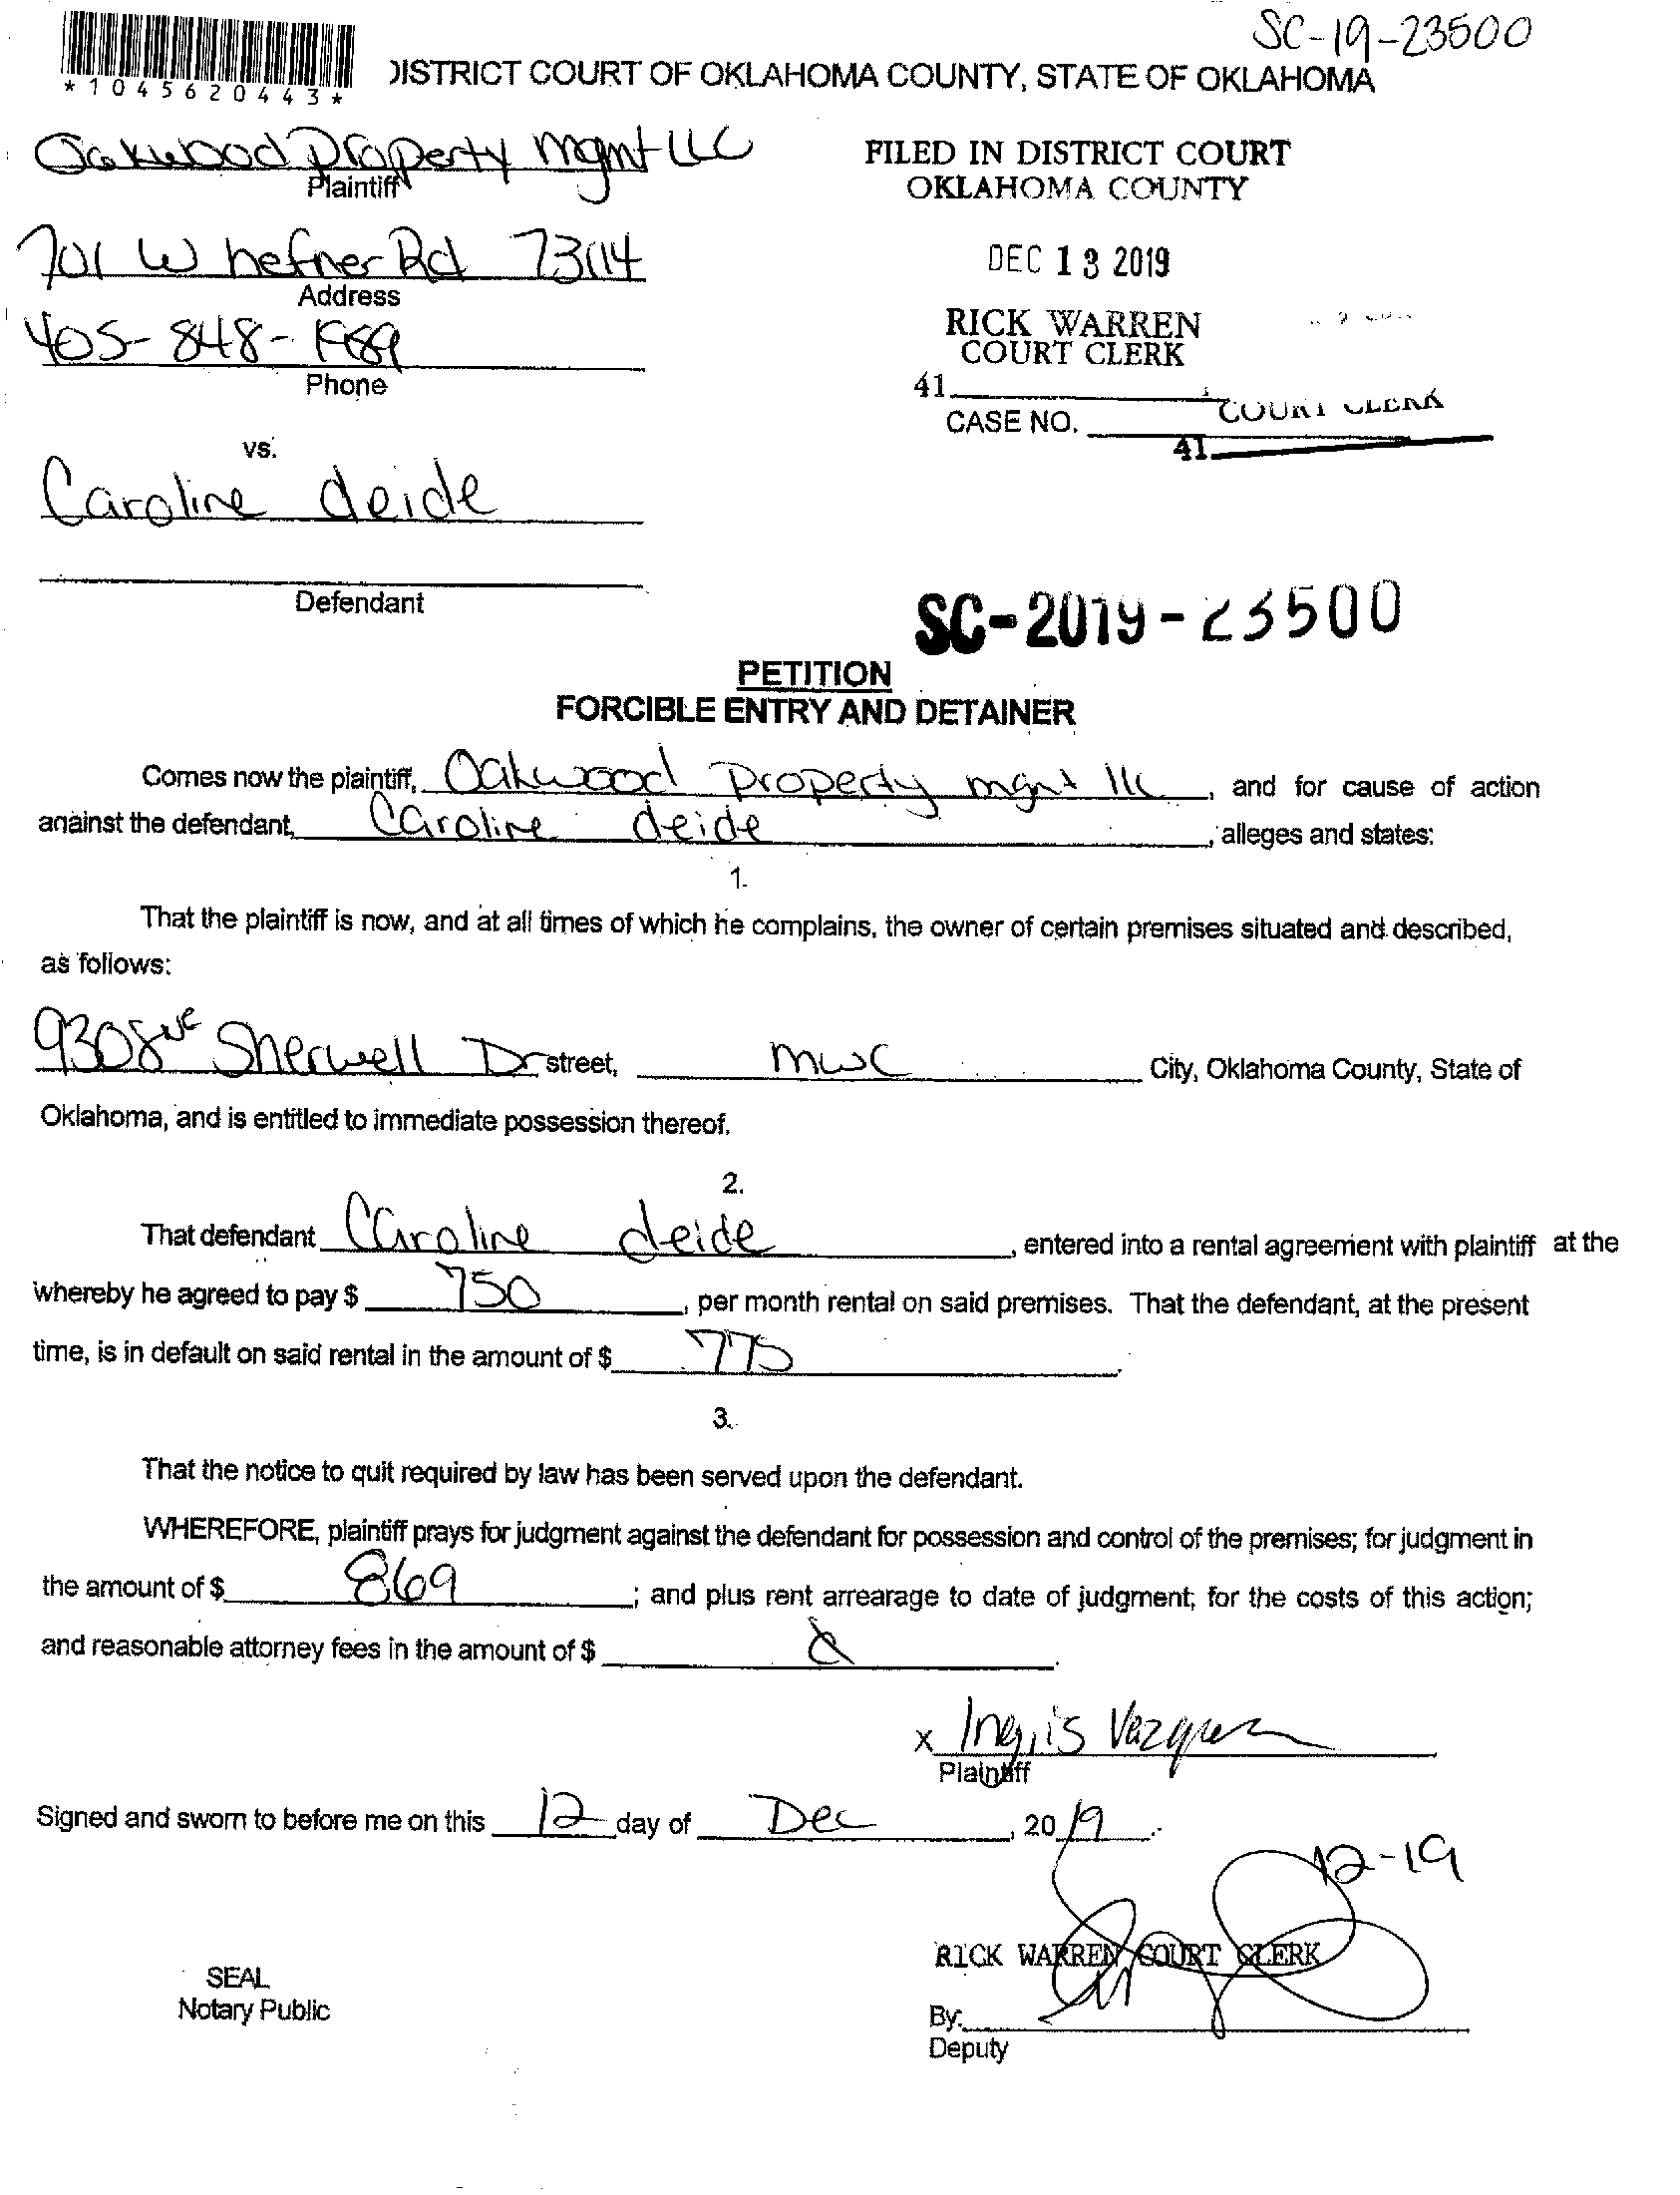 SC-19-23500
*1045620443*
DISTRICT COURT OF OKLAHOMA COUNTY, STATE OF OKLAHOMA
Oakwood Property Mgmt LLC
Plaintiff
FILED IN DISTRICT COURT
OKLAHOMA COUNTY
701 W hefner Rd 73114
Address
DEC 13 2019
405-848-
Phone
RICK WARREN
COURT CLERK
41
COURT CLERK
CASE NO.
41
vs.
Caroline deide
Defendant
SC-2019-23500
PETITION
FORCIBLE ENTRY AND DETAINER
Comes now the plaintiff, Oakwood Property mgnt llc, and for cause of action
against the defendant, Caroline deide, alleges and states:
1.
That the plaintiff is now, and at all times of which he complains, the owner of certain premises situated and described,
as follows:
9308 NE Sherwell Dr street, mwc City, Oklahoma County, State of
Oklahoma, and is entitled to immediate possession thereof.
2.
That defendant Caroline deide, entered into a rental agreement with plaintiff at the
whereby he agreed to pay $ 750, per month rental on said premises. That the defendant, at the present
time, is in default on said rental in the amount of $ 775.
3.
That the notice to quit required by law has been served upon the defendant.
WHEREFORE, plaintiff prays for judgment against the defendant for possession and control of the premises; for judgment in
the amount of $ 869; and plus rent arrearage to date of judgment; for the costs of this action;
and reasonable attorney fees in the amount of $
x Vazquez
Plaintiff
Signed and sworn to before me on this 12 day of Dec, 2019.
12-19
RICK WARREN COURT CLERK
SEAL
Notary Public
By:
Deputy